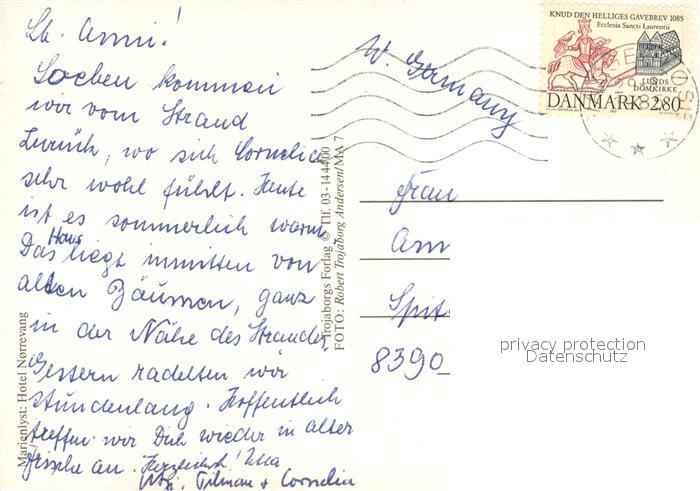 Lb. Ammi!
Soeben kommen
wir vom Strand
zurück, wo sich Cornelia
sehr wohl fühlt. Heute
ist es sommerlich warm
Das Haus liegt inmitten von
alten Bäumen, ganz
in der Nähe des Strandes,
Gestern radelten wir
stundenlang. Hoffentlich
treffen wir Dich wieder in alter
Frische an. Herzlichst!
Tilman + Cornelia
Marienlyst: Hotel Nørrevang
Trojaborgs Forlag © Tlf. 03-14 44 00
FOTO: Robert Trojaborg Andersen/MA 7
KNUD DEN HELLIGES GAVEBREV 1085
Ecclesia Sancti Laurentii
LUNDS
DOMKIRKE
DANMARK 2.80
W. Germany
Frau
Am
Spit
8390
privacy protection
Datenschutz